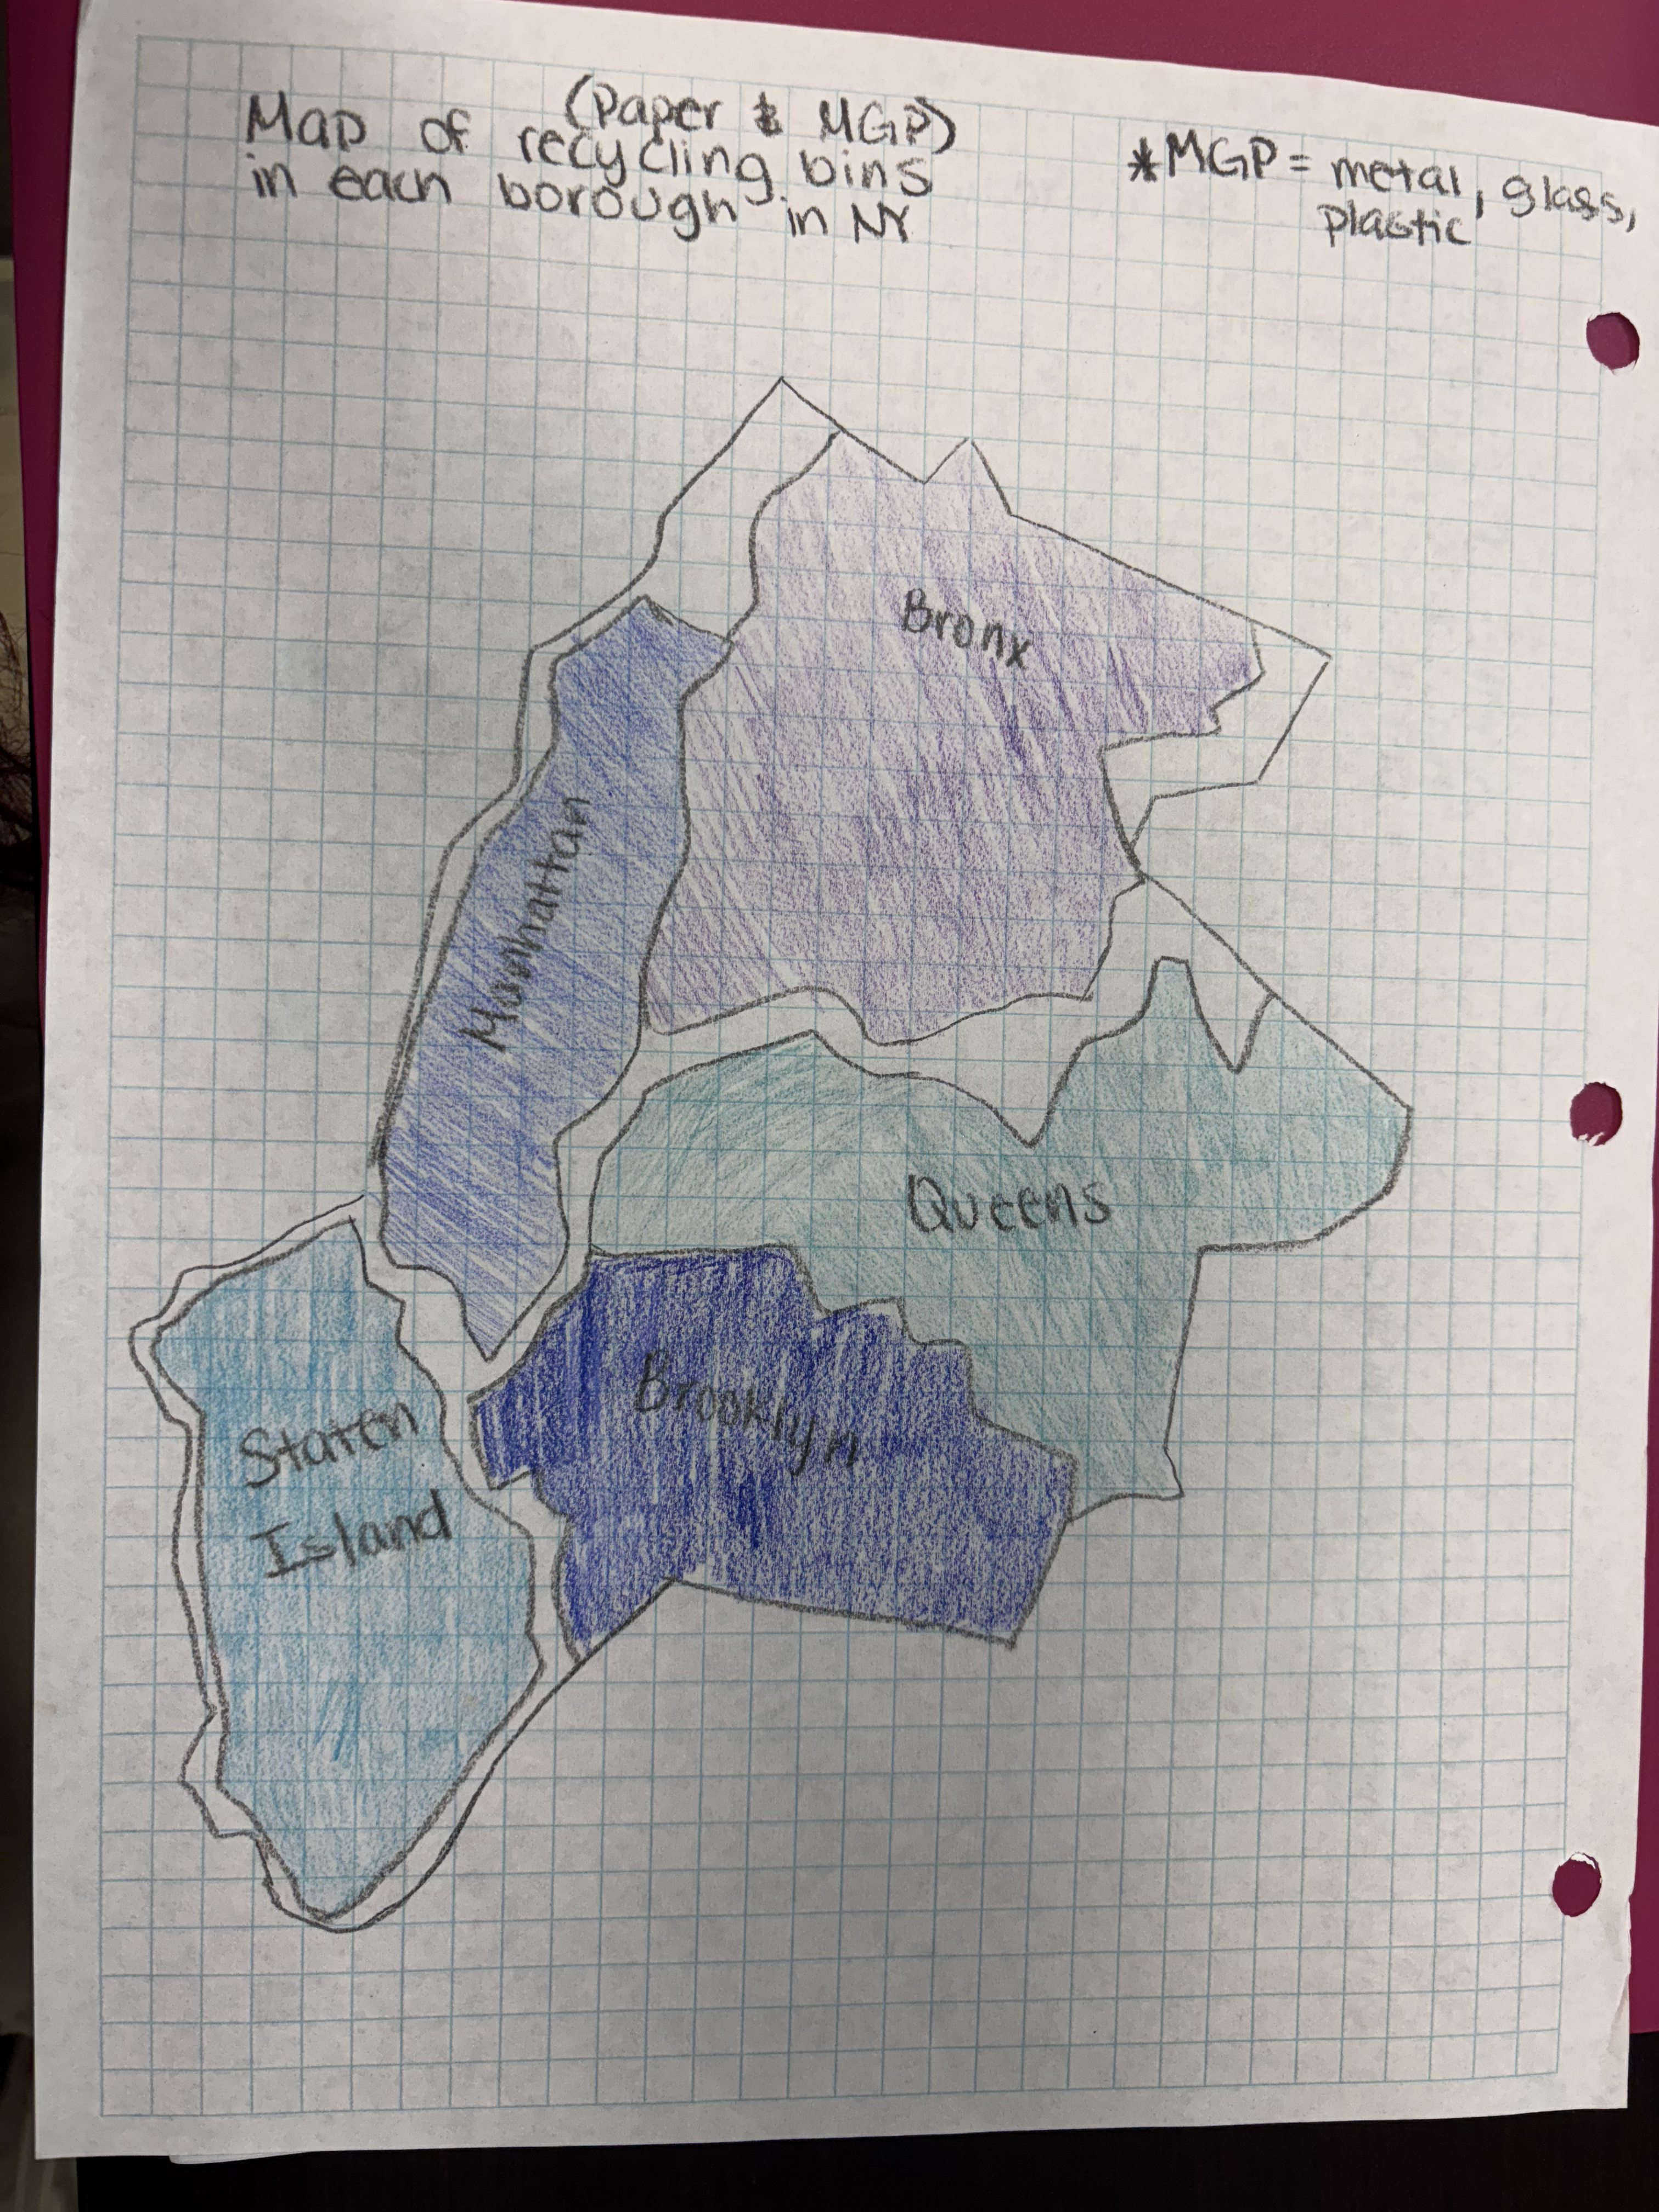 (Paper & MGP)
Map of recycling bins
in each borough in NY
*MGP = metal, glass,
plastic
Bronx
Manhattan
Queens
Brooklyn
Staten
Island